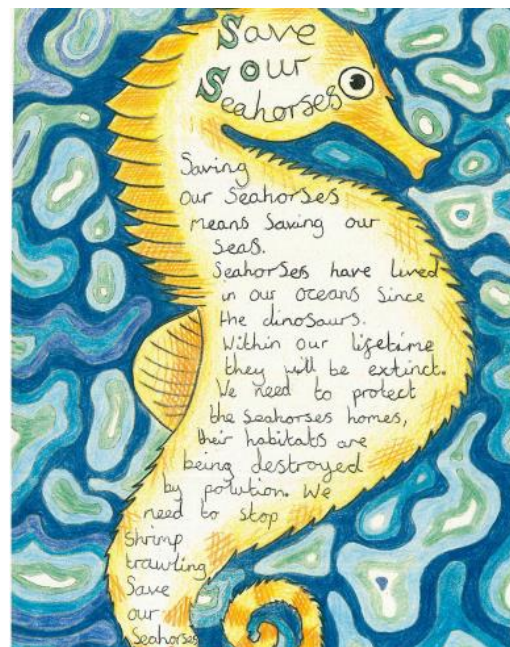 Save
Our
Seahorses
Saving
our Seahorses
means Saving our
Seas.
Seahorses have lived
in our oceans Since
the dinosaurs.
Within our lifetime
they will be extinct.
We need to protect
the Seahorses homes,
their habitats are
being destroyed
by polution. We
need to stop
Shrimp
trawling
Save
our
Seahorses